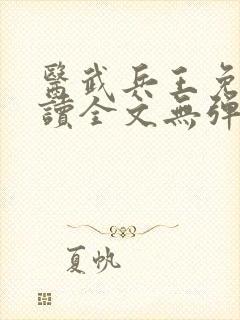 醫武兵王免
讀全文無彈
夏帆